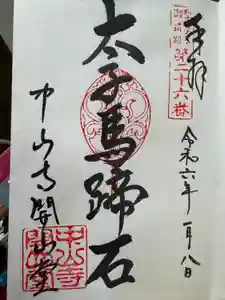 奉拝
第二十六番
令和六年一月八日
太子馬蹄石
中山寺開山堂